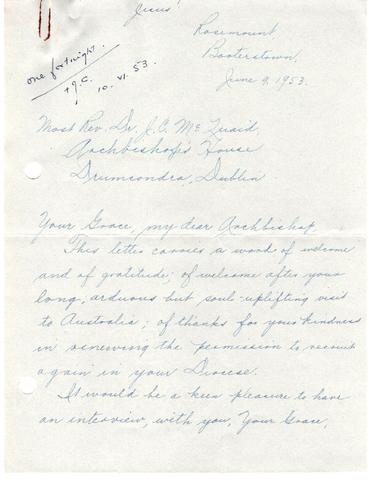 Jesus!
Rosemount
Booterstown.
June 9, 1953.
one fortnight.
+ J.C.
10. VI. 53.
Most Rev. Dr. J. C. Mc Quaid,
Archbishop's House
Drumcondra, Dublin
Your Grace, my dear Archbishop,
This letter carries a word of welcome
and of gratitude; of welcome after your
long, arduous but soul-uplifting visit
to Australia; of thanks for your kindness
in renewing the permission to recruit
again in your Diocese.
It would be a keen pleasure to have
an interview, with you, Your Grace,